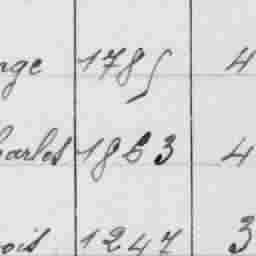 nge 1785 4
harles 1863 4
ois 1247 3